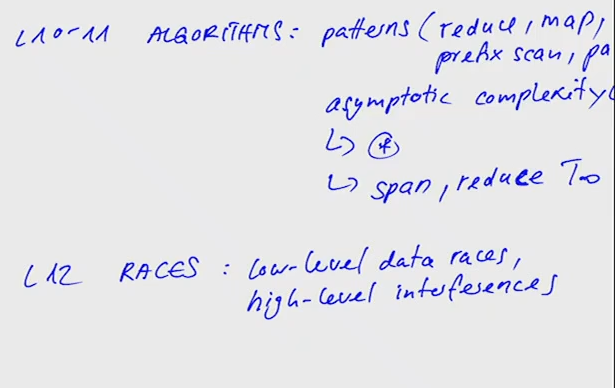 L10-11 ALGORITHMS: patterns (reduce, map,
prefix scan, pa
asymptotic complexity(
↳ *
↳ span, reduce T∞
L12 RACES: low-level data races,
high-level interferences